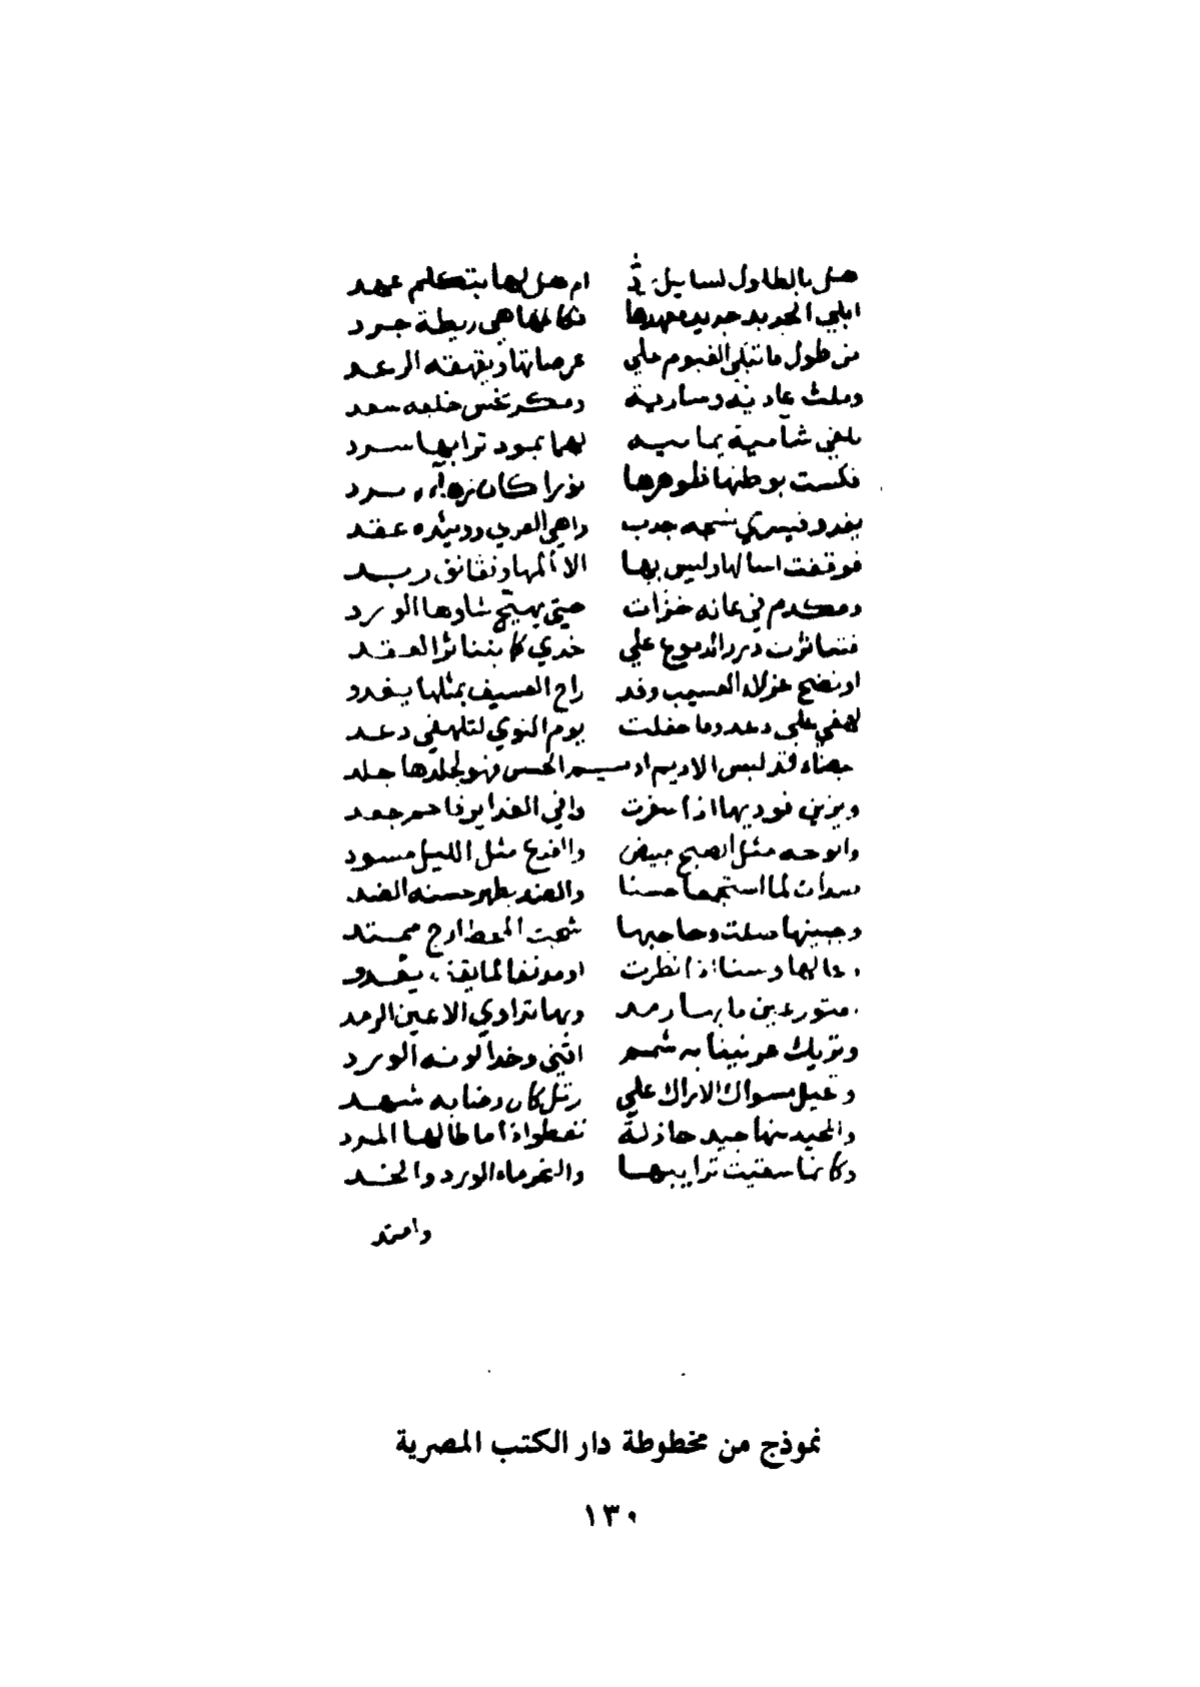 هل بالطلول لسايل رد ام هل لها بتكلم عهد
ابلي الجديد جديد معهدها فكانما هي ريطة جرد
من طول ما تبكي الغيوم علي عرصاتها ويقهقه الرعد
وملث غادية وسارية ومكر نحس خلفه سعد
تلقي شآمية يمانية لهما بمود ترابها سرد
فكست بوطنها ظوهرها نورا كان زهآءه برد
يغدو فيسري نسجه حدب واهي العري ووئيده عقد
فوقفت اسالها وليس بها الا المها ونقانق ربد
ومكدم في عانة خزات حتي يهيج شاوها الورد
فتناثرت درر الدموع علي خدي كما يتناثر العقد
او نضح عزلاء العسيب وقد راح العسيف بمثلها يغدو
لهفي علي دعد وما حفلت يوم النوي لتلهفي دعد
بيضاء قد لبس الاديم اديم الحسن فهو لجلدها جلد
ويزين فوديها اذا سفرت وافي الغداير فاحم جعد
والوجه مثل الصبح مبيض والفرع مثل الليل مسود
ضدان لما استجمعا حسنا والضد يظهر حسنه الضد
وجبينها صلت وحاجبها شخت المخط ازج ممتد
وكانها وسنا اذا نظرت او مدنف لما يفق بعد
بفتور عين ما بها رمد وبها تداوي الاعين الرمد
وتريك عرنينا به شمم اقني وخدا لونه الورد
وتجيل مسواك الاراك علي رتل كان رضابه شهد
والجيد منها جيد جازلة تعطوا اذا ما طالها المرد
وكانما سقيت ترايبها والنحر ماء الورد والخد
وامتد
نموذج من مخطوطة دار الكتب المصرية
١٣٠